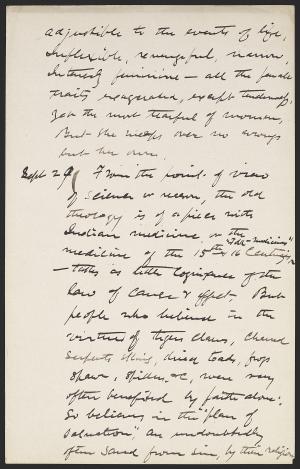 adjustible to the events of life,
inflexible, revengeful, narrow,
intensely feminine — all the female
traits exagerated, except tenderness,
Yet the most tearful of women,
But she weeps over no wrongs
but her own.
Sept 29 From the point of view
of science or reason, the old
theology is of a piece with
Indian medicine, or the "folk-medicine"
medicine of the 15th or 16 Century,
— takes as little cognizance of the
law of cause & effect. But
people who believed in the
virtues of tigers claws, charred
serpents skins, dried toads, frogs
spawn, spiders &c, were very
often benefited by faith alone.
So believers in the "plan of
salvation", are undoubtedly
often saved from sin, by their religion